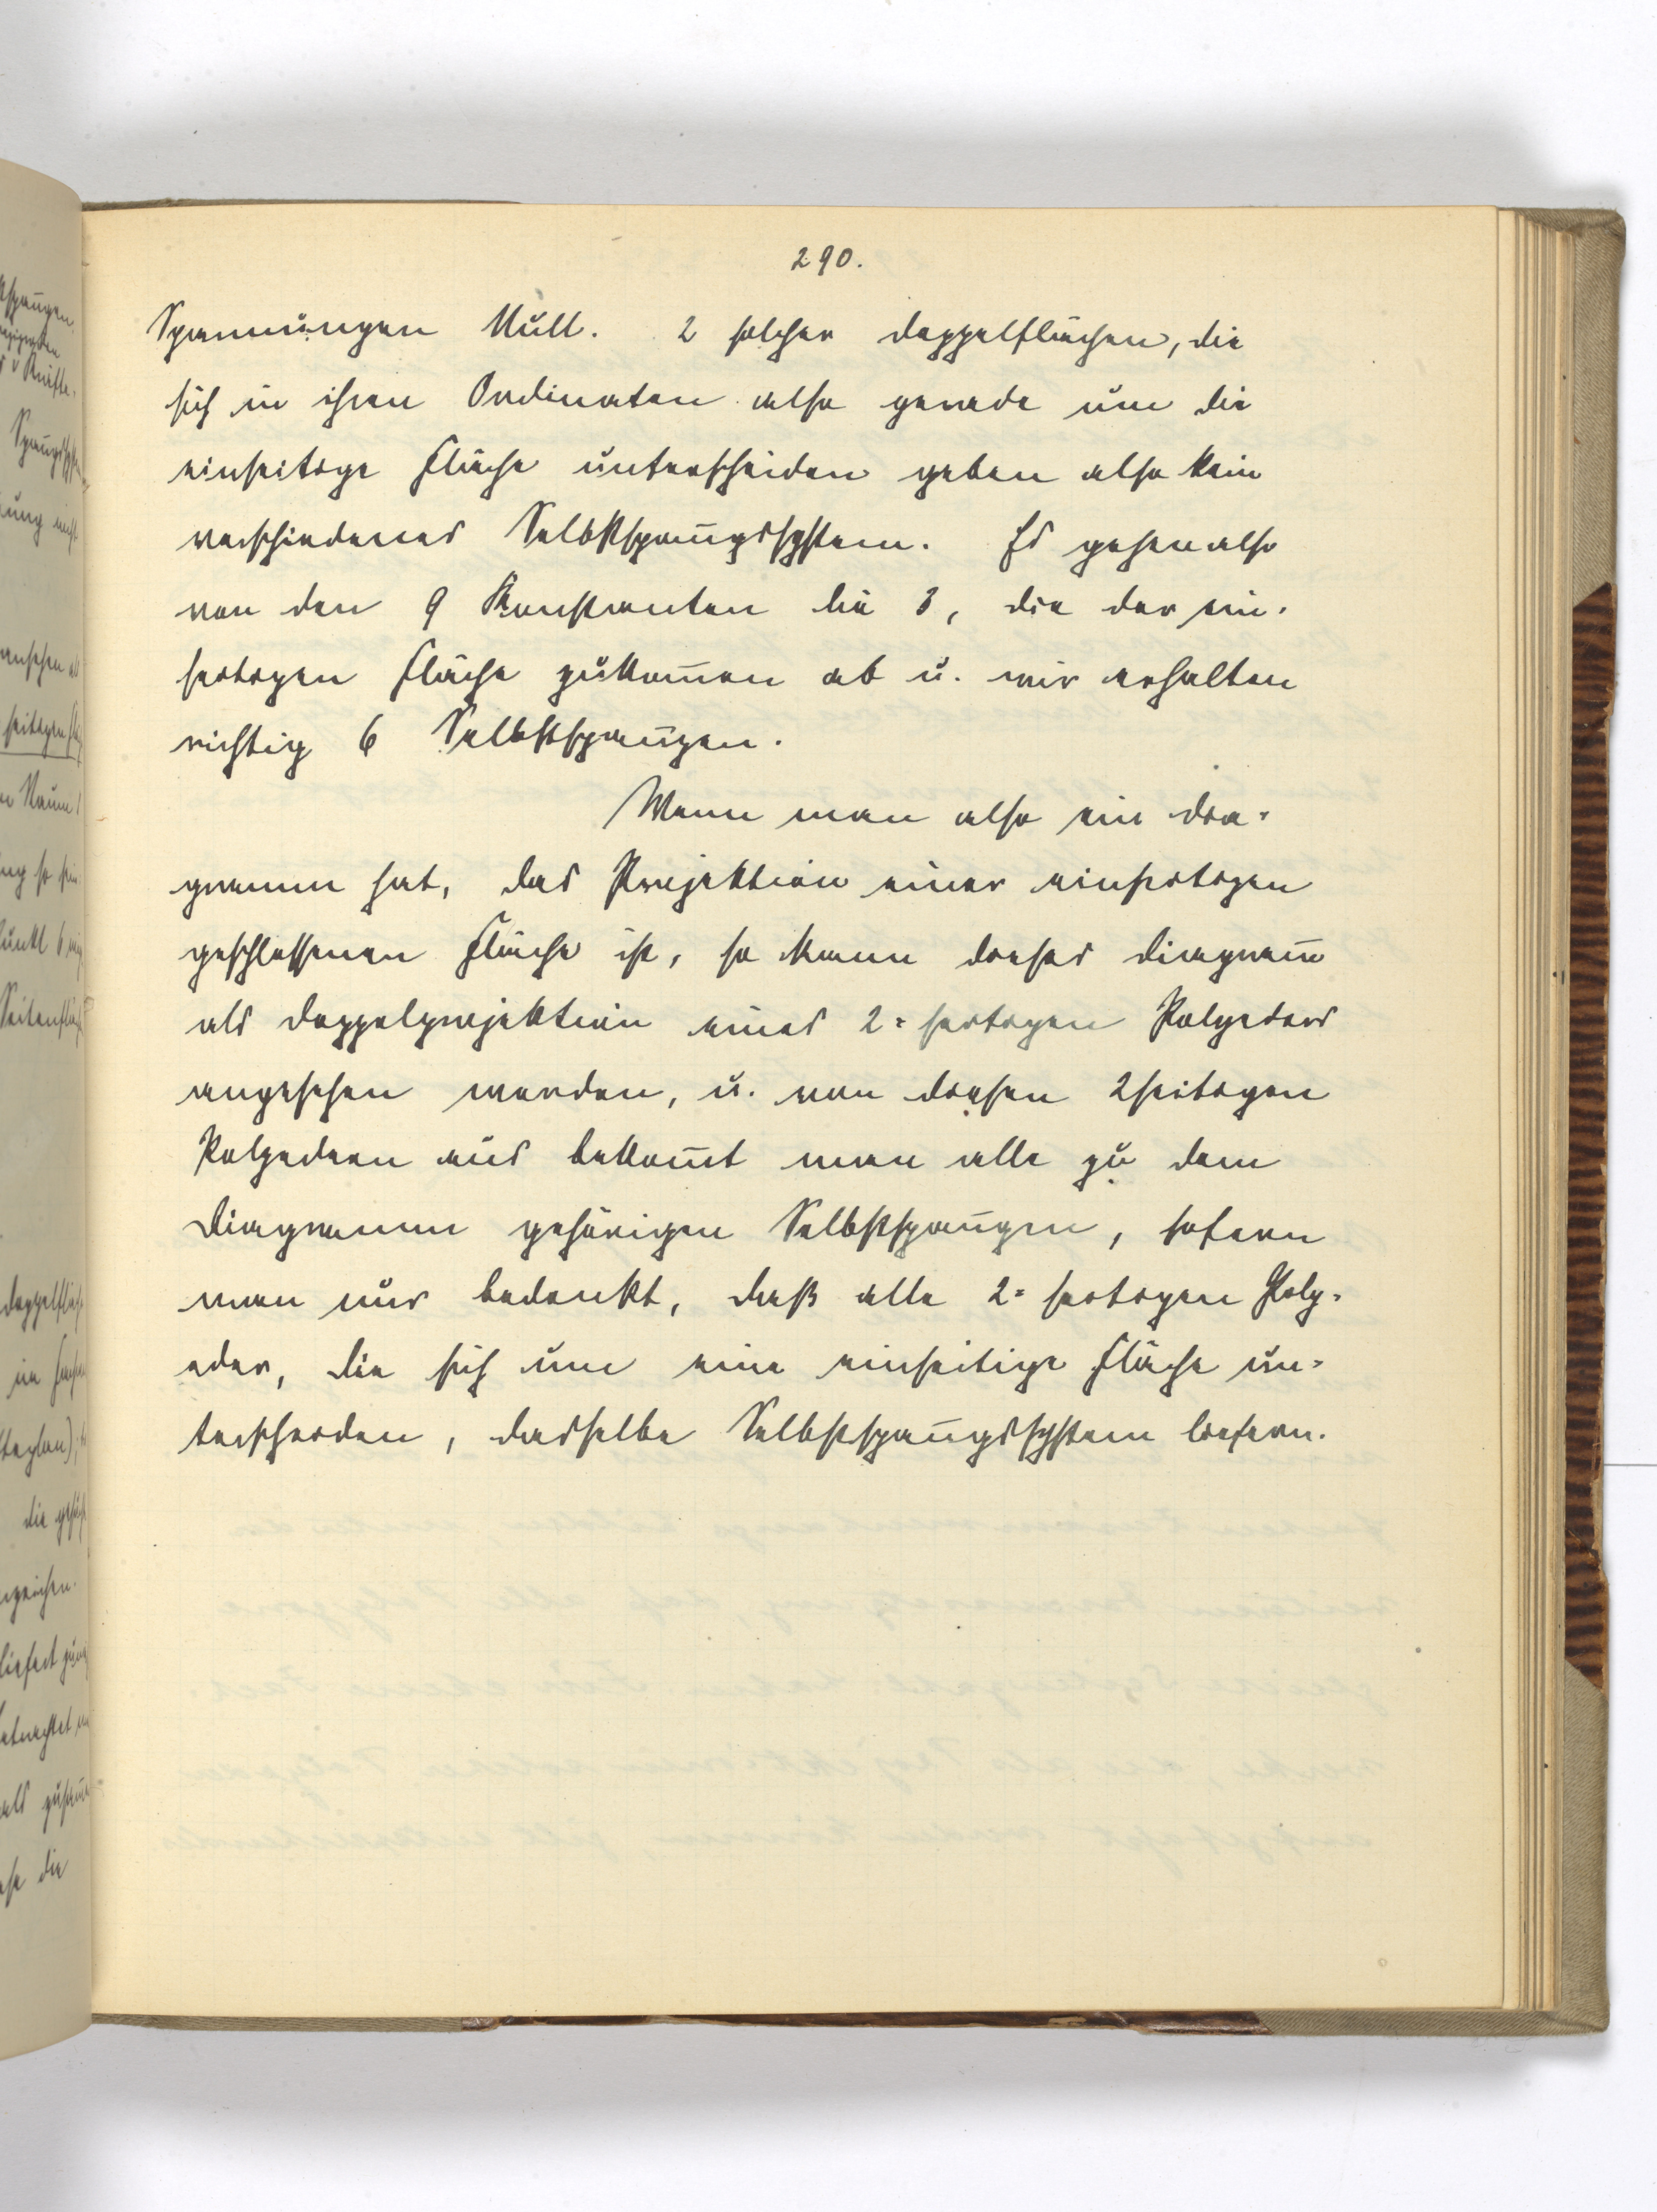 290.
Spannungen Null. 2 solcher Doppelflächen, die
sich in ihren Ordinaten also gerade um die
einseitige Fläche unterscheiden geben also kein
verschiedenes Selbstspan̄ungssystem. Es gehen also
von den 9 Konstanten die 3, die der ein-
seitigen Fläche zukom̄en ab u. wir erhalten
richtig 6 Selbstspan̄ungen.
Wenn man also ein Dia-
gramm hat, das Projektion einer einseitigen
geschlossenen Fläche ist, so kann dieses Diagram̄
als Doppelprojektion eines 2=seitigen Polyeders
angesehen werden, u. von diesen 2seitigen
Polyedern aus bekom̄t man alle zu dem
Diagramm gehörigen Selbstspan̄ungen, sofern
man nur bedenkt, daß alle 2=seitigen Poly-
eder, die sich um eine einseitige Fläche un-
terscheiden, dasselbe Selbstspan̄ungssystem liefern.